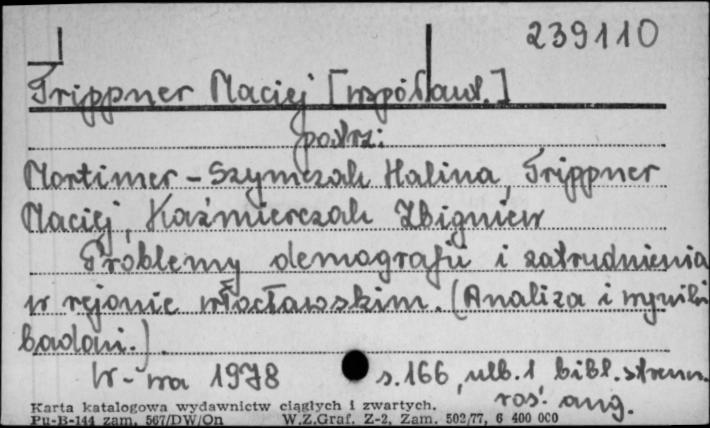 239110
Trippner Maciej [współaut.]
patrz:
Mortimer-Szymczak Halina, Trippner
Maciej, Kaźmierczak Zbigniew
Problemy demografii i zatrudnienia
w rejonie włocławskim. (Analiza i wyniki
badań.).
W-wa 1978 s. 166, nlb. 1 bibl. streszcz.
ros. ang.
Karta katalogowa wydawnictw ciągłych i zwartych.
Pu-B-144 zam. 567/DW/On W.Z.Graf. Z-2, Zam. 502/77, 6 400 000